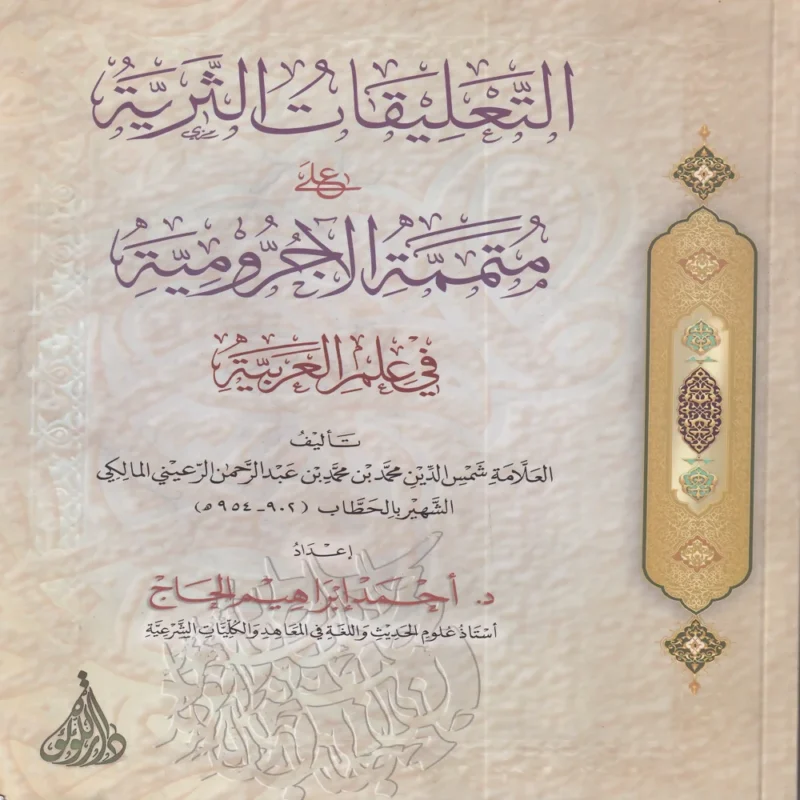 التَّعْلِيقَاتُ الثَّرِيَّةُ
عَلَى
مُتَمِّمَةِ الآجُرُّومِيَّةِ
فِي عِلْمِ العَرَبِيَّةِ
تَأليفُ
العَلَّامَةِ شَمْسِ الدِّينِ مُحَمَّدِ بْنِ مُحَمَّدِ بْنِ عَبْدِ الرَّحمٰنِ الرَّعيني المَالِكِي
الشَّهِيرِ بِالحَطَّابِ (٩٠٢-٩٥٤ ه)
إِعْدَادُ
د. أَحْمَد إِبْرَاهِيم الحَاج
أُسْتَاذُ عُلُومِ الحَدِيثِ وَاللُّغَةِ فِي المَعَاهِدِ وَالكُلِّيَّاتِ الشَّرْعِيَّةِ
دار اللؤلؤة